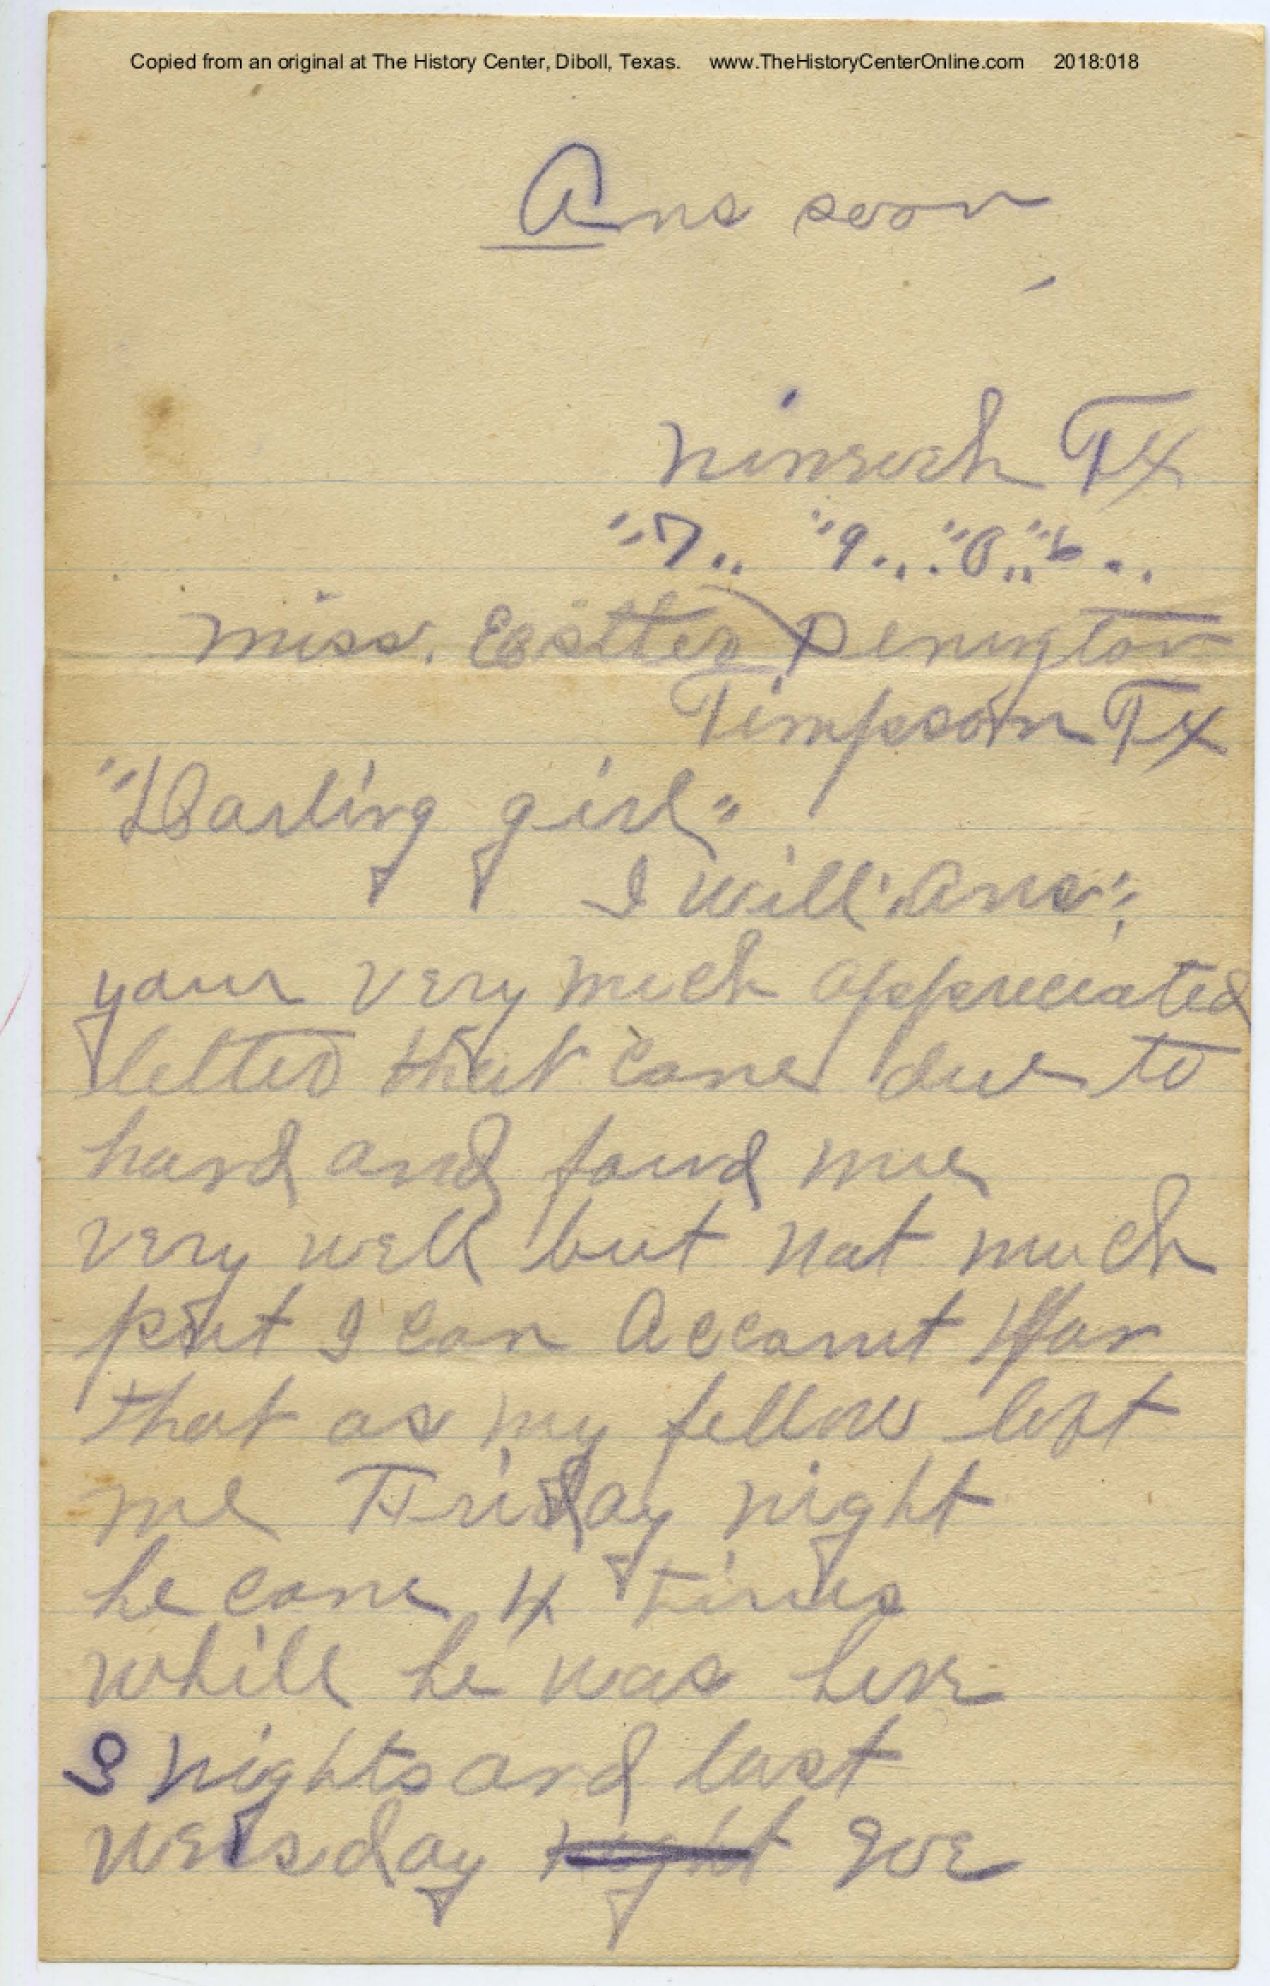 Copied from an original at The History Center, Diboll, Texas. www.TheHistoryCenterOnline.com 2018:018
Ans soon
Tx
"7.. "9.. "0.."6..
Miss. Eastter Penington
Timpson Tx
"Darling girl"
I will "Ans"
your very much appreciated
letter that came due to
hand and found me
very well but not much
peirt I can Account for
that as my fellow left
me Friday night
he came 4 times
while he was here
3 nights and last
Wensday night eve